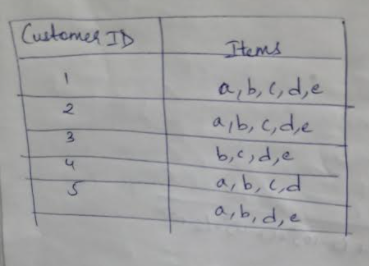 Customer ID Items
1 a, b, c, d, e
2 a, b, c, d, e
3 b, c, d, e
4 a, b, c, d
5 a, b, d, e